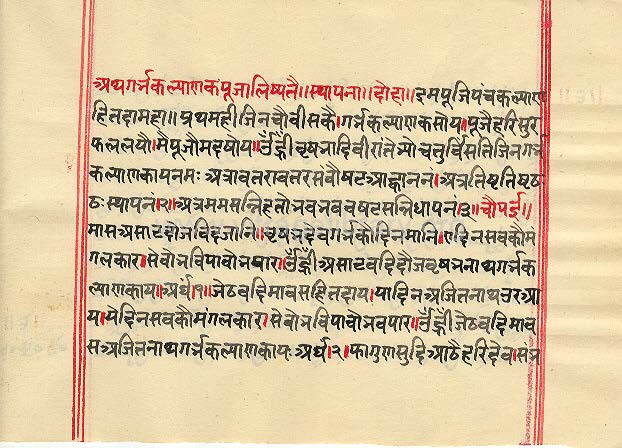 अथगर्भकल्याणकपूजालिष्यते॥स्थापना॥दोहा॥इमपूजिपंचकल्याण
हितदामहा॥प्रथमहीजिनचौवीसकै।गर्भकल्याणकसोय।पूजैहरिसुर
फललयौ।मैपूजौमदषोय॥ॐह्रीवृषभादिवीरांतेभ्योचतुर्विसतिजिनगर्भ
कल्याणकायनमःअत्रावतरावतरसंवौषट्आह्वाननं।अत्रतिष्ठतिष्ठठ
ठःस्थापनं।२।अत्रममसन्निहतोभवभववषट्सन्निधापनं।३॥चौपई॥
मासअसाढदौजवदिजानि।वृषभदेवगर्भकोदिनमानि।सदिनसवकौमं
गलकार।सेवौभविपावोभवपार।ॐह्रीअसाढवदिदौजवृषभनाथगर्भक
ल्याणकाय।अर्घं।१।जेठवदिमावसहितदाय।यादिनअजितनाथउरआ
य।येदिनसवकौमंगलकार।सेवोभविपावोभवपार।ॐह्रीजेठवदिमाव
सअजितनाथगर्भकल्याणकायःअर्घ।२।फागुणसुदिआठैहरिदेव।सेभ